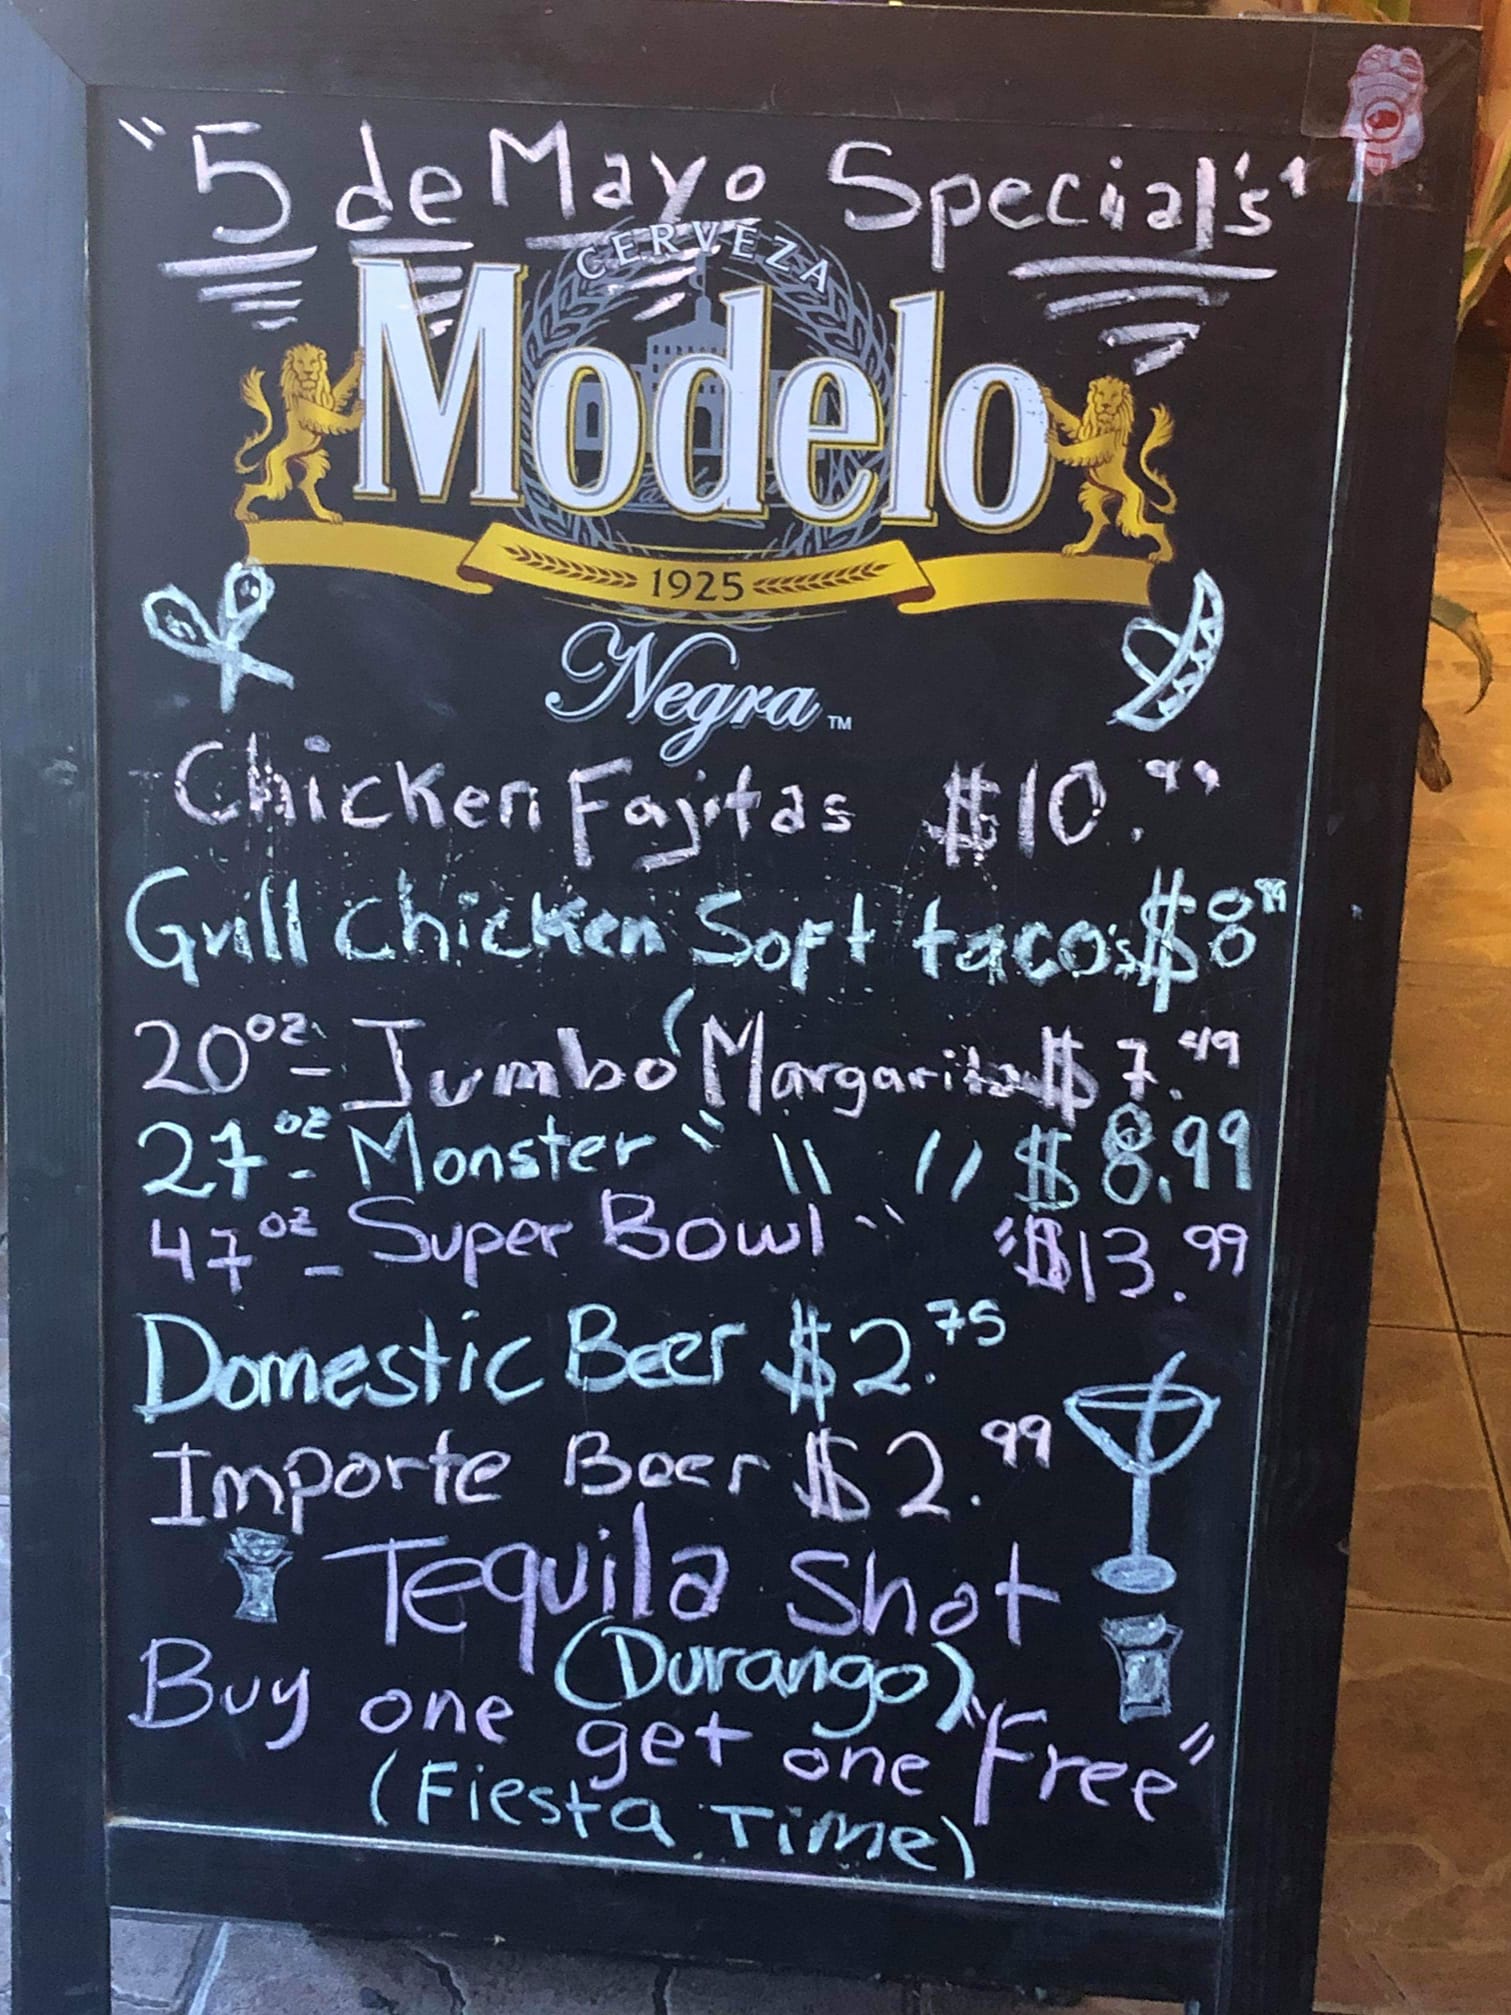 "5 de Mayo Special's"
CERVEZA
Modelo
1925
Negra™
Chicken Fajitas $10.99
Grill chicken Soft tacos $8
20oz - Jumbo Margarita $7.49
27oz - Monster " " " $8.99
47oz - Super Bowl " " $13.99
Domestic Beer $2.75
Importe Beer $2.99
Tequila Shot
(Durango)
Buy one get one "Free"
(Fiesta Time)